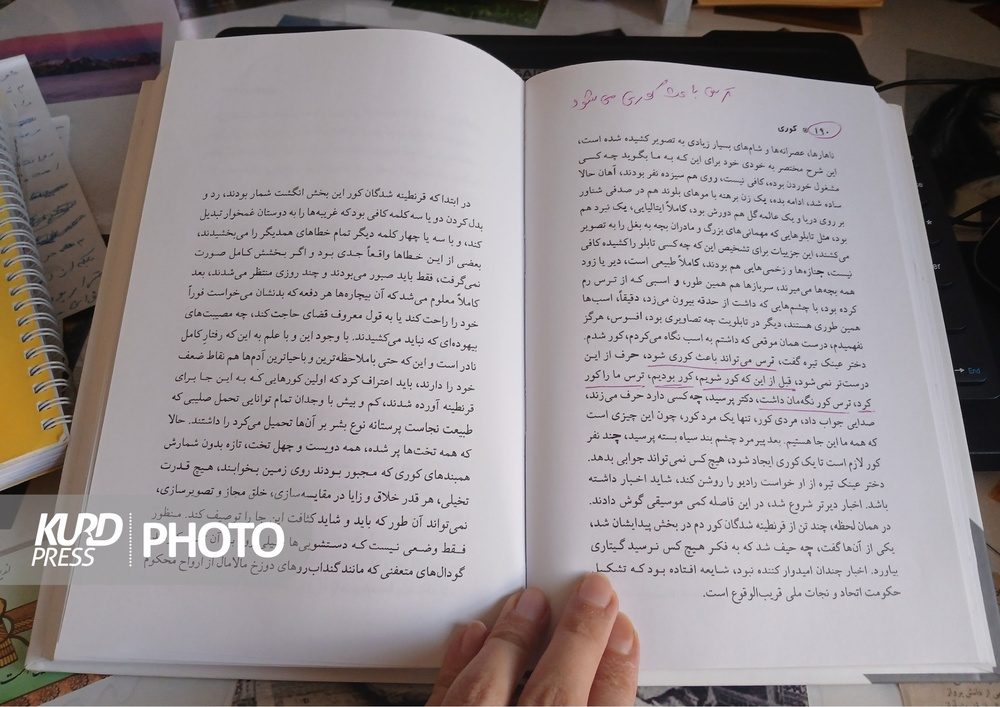 ترس باعث کوری می‌شود
۱۹۰ کوری
ناهارها، عصرانه‌ها و شام‌های بسیار زیادی به تصویر کشیده شده است،
این شرح مختصر به خودی خود برای این که به ما بگوید چه کسی
مشغول خوردن بوده، کافی نیست، روی هم سیزده نفر بودند، آهان حالا
ساده شد، ادامه بده، یک زن برهنه با موهای بلوند هم در صدفی شناور
بر روی دریا و یک عالمه گل هم دورش بود، کاملاً ایتالیایی، یک نبرد هم
بود، مثل تابلوهایی که مهمانی‌های بزرگ و مادران بچه به بغل را به تصویر
می‌کشند، این جزییات برای تشخیص این که چه کسی تابلو را کشیده کافی
نیست، جنازه‌ها و زخمی‌هایی هم بودند، کاملاً طبیعی است، دیر یا زود
همه بچه‌ها می‌میرند، سربازها هم همین طور، و اسبی که از ترس رم
کرده بود، با چشم‌هایی که داشت از حدقه بیرون می‌زد، دقیقاً، اسب‌ها
همین طوری هستند، دیگر در تابلویت چه تصاویری بود، افسوس، هرگز
نفهمیدم، درست همان موقعی که داشتم به اسب نگاه می‌کردم، کور شدم.
دختر عینک تیره گفت، ترس می‌تواند باعث کوری شود، حرف از این
درست‌تر نمی شود، قبل از این که کور شویم، کور بودیم، ترس ما را کور
کرد، ترس کور نگه‌مان داشت، دکتر پرسید، چه کسی دارد حرف می‌زند،
صدایی جواب داد، مردی کور، تنها یک مرد کور، چون این چیزی است
که همه ما این جا هستیم. بعد پیرمرد چشم بند سیاه بسته پرسید، چند نفر
کور لازم است تا یک کوری ایجاد شود، هیچ کس نمی‌تواند جوابی بدهد.
دختر عینک تیره از او خواست رادیو را روشن کند، شاید اخبار داشته
باشد. اخبار دیرتر شروع شد، در این فاصله کمی موسیقی گوش دادند.
در همان لحظه، چند تن از قرنطینه شدگان کور دم در بخش پیدایشان شد،
یکی از آن‌ها گفت، چه حیف شد که به فکر هیچ کس نرسید گیتاری
بیاورد. اخبار چندان امیدوار کننده نبود، شایعه افتاده بود که تشکیل
حکومت اتحاد و نجات ملی قریب‌الوقوع است.
در ابتدا که قرنطینه شدگان کور این بخش انگشت شمار بودند، رد و
بدل کردن دو یا سه کلمه کافی بود که غریبه‌ها را به دوستان غمخوار تبدیل
کند، و با سه یا چهار کلمه دیگر تمام خطاهای همدیگر را می‌بخشیدند،
بعضی از این خطاها واقعاً جدی بود و اگر بخشش کامل صورت
نمی‌گرفت، فقط باید صبور می‌بودند و چند روزی منتظر می‌شدند، بعد
کاملاً معلوم می‌شد که آن بیچاره‌ها هر دفعه که بدنشان می‌خواست فوراً
خود را راحت کند یا به قول معروف قضای حاجت کند، چه مصیبت‌های
بیهوده‌ای که نباید می‌کشیدند. با وجود این و با علم به این که رفتار کامل
نادر است و این که حتی باملاحظه‌ترین و باحیاترین آدم‌ها هم نقاط ضعف
خود را دارند، باید اعتراف کرد که اولین کورهایی که به این جا برای
قرنطینه آورده شدند، کم و بیش با وجدان تمام توانایی تحمل صلیبی که
طبیعت نجاست پرستانه نوع بشر بر آن‌ها تحمیل می‌کرد را داشتند. حالا
که همه تخت‌ها پر شده، همه دویست و چهل تخت، تازه بدون شمارش
همبندهای کوری که مجبور بودند روی زمین بخوابند، هیچ قدرت
تخیلی، هر قدر خلاق و زایا در مقایسه‌سازی، خلق مجاز و تصویرسازی،
نمی‌تواند آن طور که باید و شاید کثافت این جا را توصیف کند. منظور
فقط وضعی نیست که دستشویی‌ها
گودال‌های متعفنی که مانند گنداب‌روهای دوزخ مالامال از ارواح محکوم
KURD
PRESS
PHOTO
End